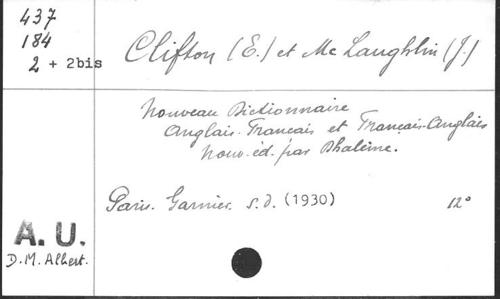 437
184
2 + 2bis
Clifton (E.) et Mc Laughlin (J.)
Nouveau Dictionnaire
Anglais-Français et Français-Anglais
Nouv. éd. par Dhaleine.
Paris. Garnier. s.d. (1930) 12°
A. U.
D.M. Albert.